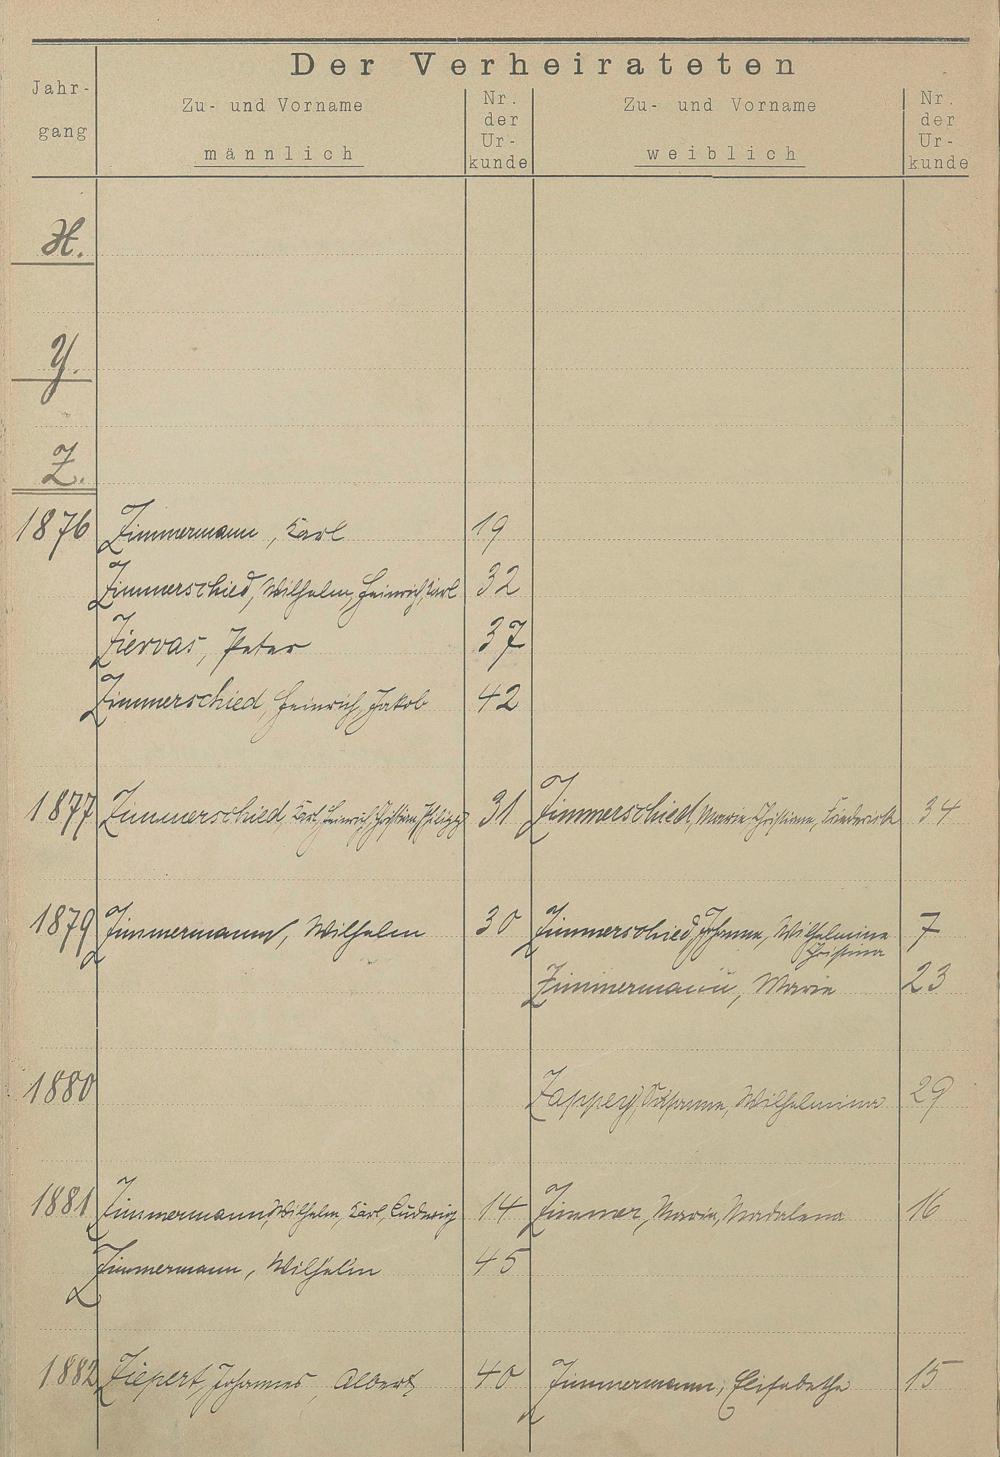 Der Verheirateten
Jahr-
gang
Zu- und Vorname
männlich
Nr.
der
Ur-
kunde
Zu- und Vorname
weiblich
Nr.
der
Ur-
kunde
X.
Y.
Z.
1876 Zimmermann, Karl 19
Zimmerschied, Wilhelm, Heinrich, Karl 32
Ziervas, Peter 37
Zimmerschied, Heinrich, Jakob 42
1877 Zimmerschied, Karl, Heinrich, Christian, Philipp 31 Zimmerschied, Marie Christiane, Friederike 34
1879 Zimmermann, Wilhelm 30 Zimmerschied, Johanne, Wilhelmine 7
Christina
Zimmermann, Marie 23
1880 Wilhelmina 29
1881 Zimmermann, Wilhelm, Karl, Ludwig 14 Zimmer, Maria, Madalena 16
Zimmermann, Wilhelm 45
1882 Ziepert, Johannes, Albert 40 Zimmermann, Elisabethe 15